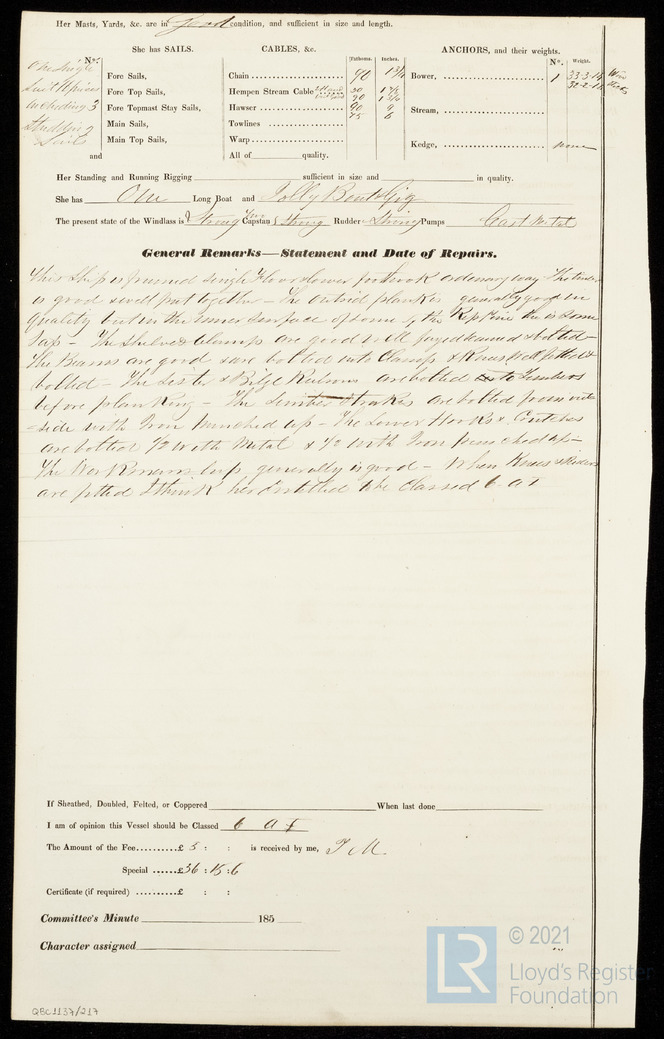 Her Masts, Yards, &c. are in Good condition, and sufficient in size and length.
She has SAILS. CABLES, &c. ANCHORS, and their weights.
N°. Fathoms. Inches. N°. Weight.
One Single
Suit
including 3
Studding
Sails
Fore Sails,
Fore Top Sails,
Fore Topmast Stay Sails,
Main Sails,
Main Top Sails,
and
Chain 90
Hempen Stream Cable
Hawser 90
Towlines 75 6
Warp
All of quality.
Bower, 1 33-3-14
Stream,
Kedge, none
Her Standing and Running Rigging sufficient in size and in quality.
She has One Long Boat and Jolly Boat & Gig
The present state of the Windlass is Strong Capstan Strong Rudder Strong Pumps Cast Metal
General Remarks—Statement and Date of Repairs.
This Ship is framed single Floor & lower foothook ordinary way The timber
is good & well put together – The outside plank is generally good in
quality but in the inner surface of some of the Rep Pine there is some
Sap – The Shelves & Clamps are good well & bolted –
The Beams are good sure bolted into Clamps & Knees well fitted &
bolted – The Sister & Bilge Keelsons are bolted to Timbers
before planking – The Limber Strakes are bolted from out
side with Iron punched up – The Lower Hooks & Crutches
are bolted 1/2 with Metal & 1/2 with Iron
The Workmanship generally is good – When Knees & Riders
are fitted I think her entitled to be Classed 6 A 1
If Sheathed, Doubled, Felted, or Coppered When last done
I am of opinion this Vessel should be Classed 6 A 1
The Amount of the Fee..........£ 5 : : is received by me,
Special ......£36 : 15 : 6
Certificate (if required) ..........£ : :
Committee's Minute 185
Character assigned
LR © 2021
Lloyd's Register
Foundation
QBC1137/217